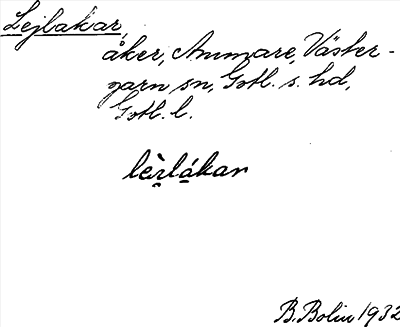 Lejlakar,
åker, Ammare, Väster-
garn sn, Gotl. s. hd,
Gotl. l.
lèr̬lákar
B. Bolin 1932